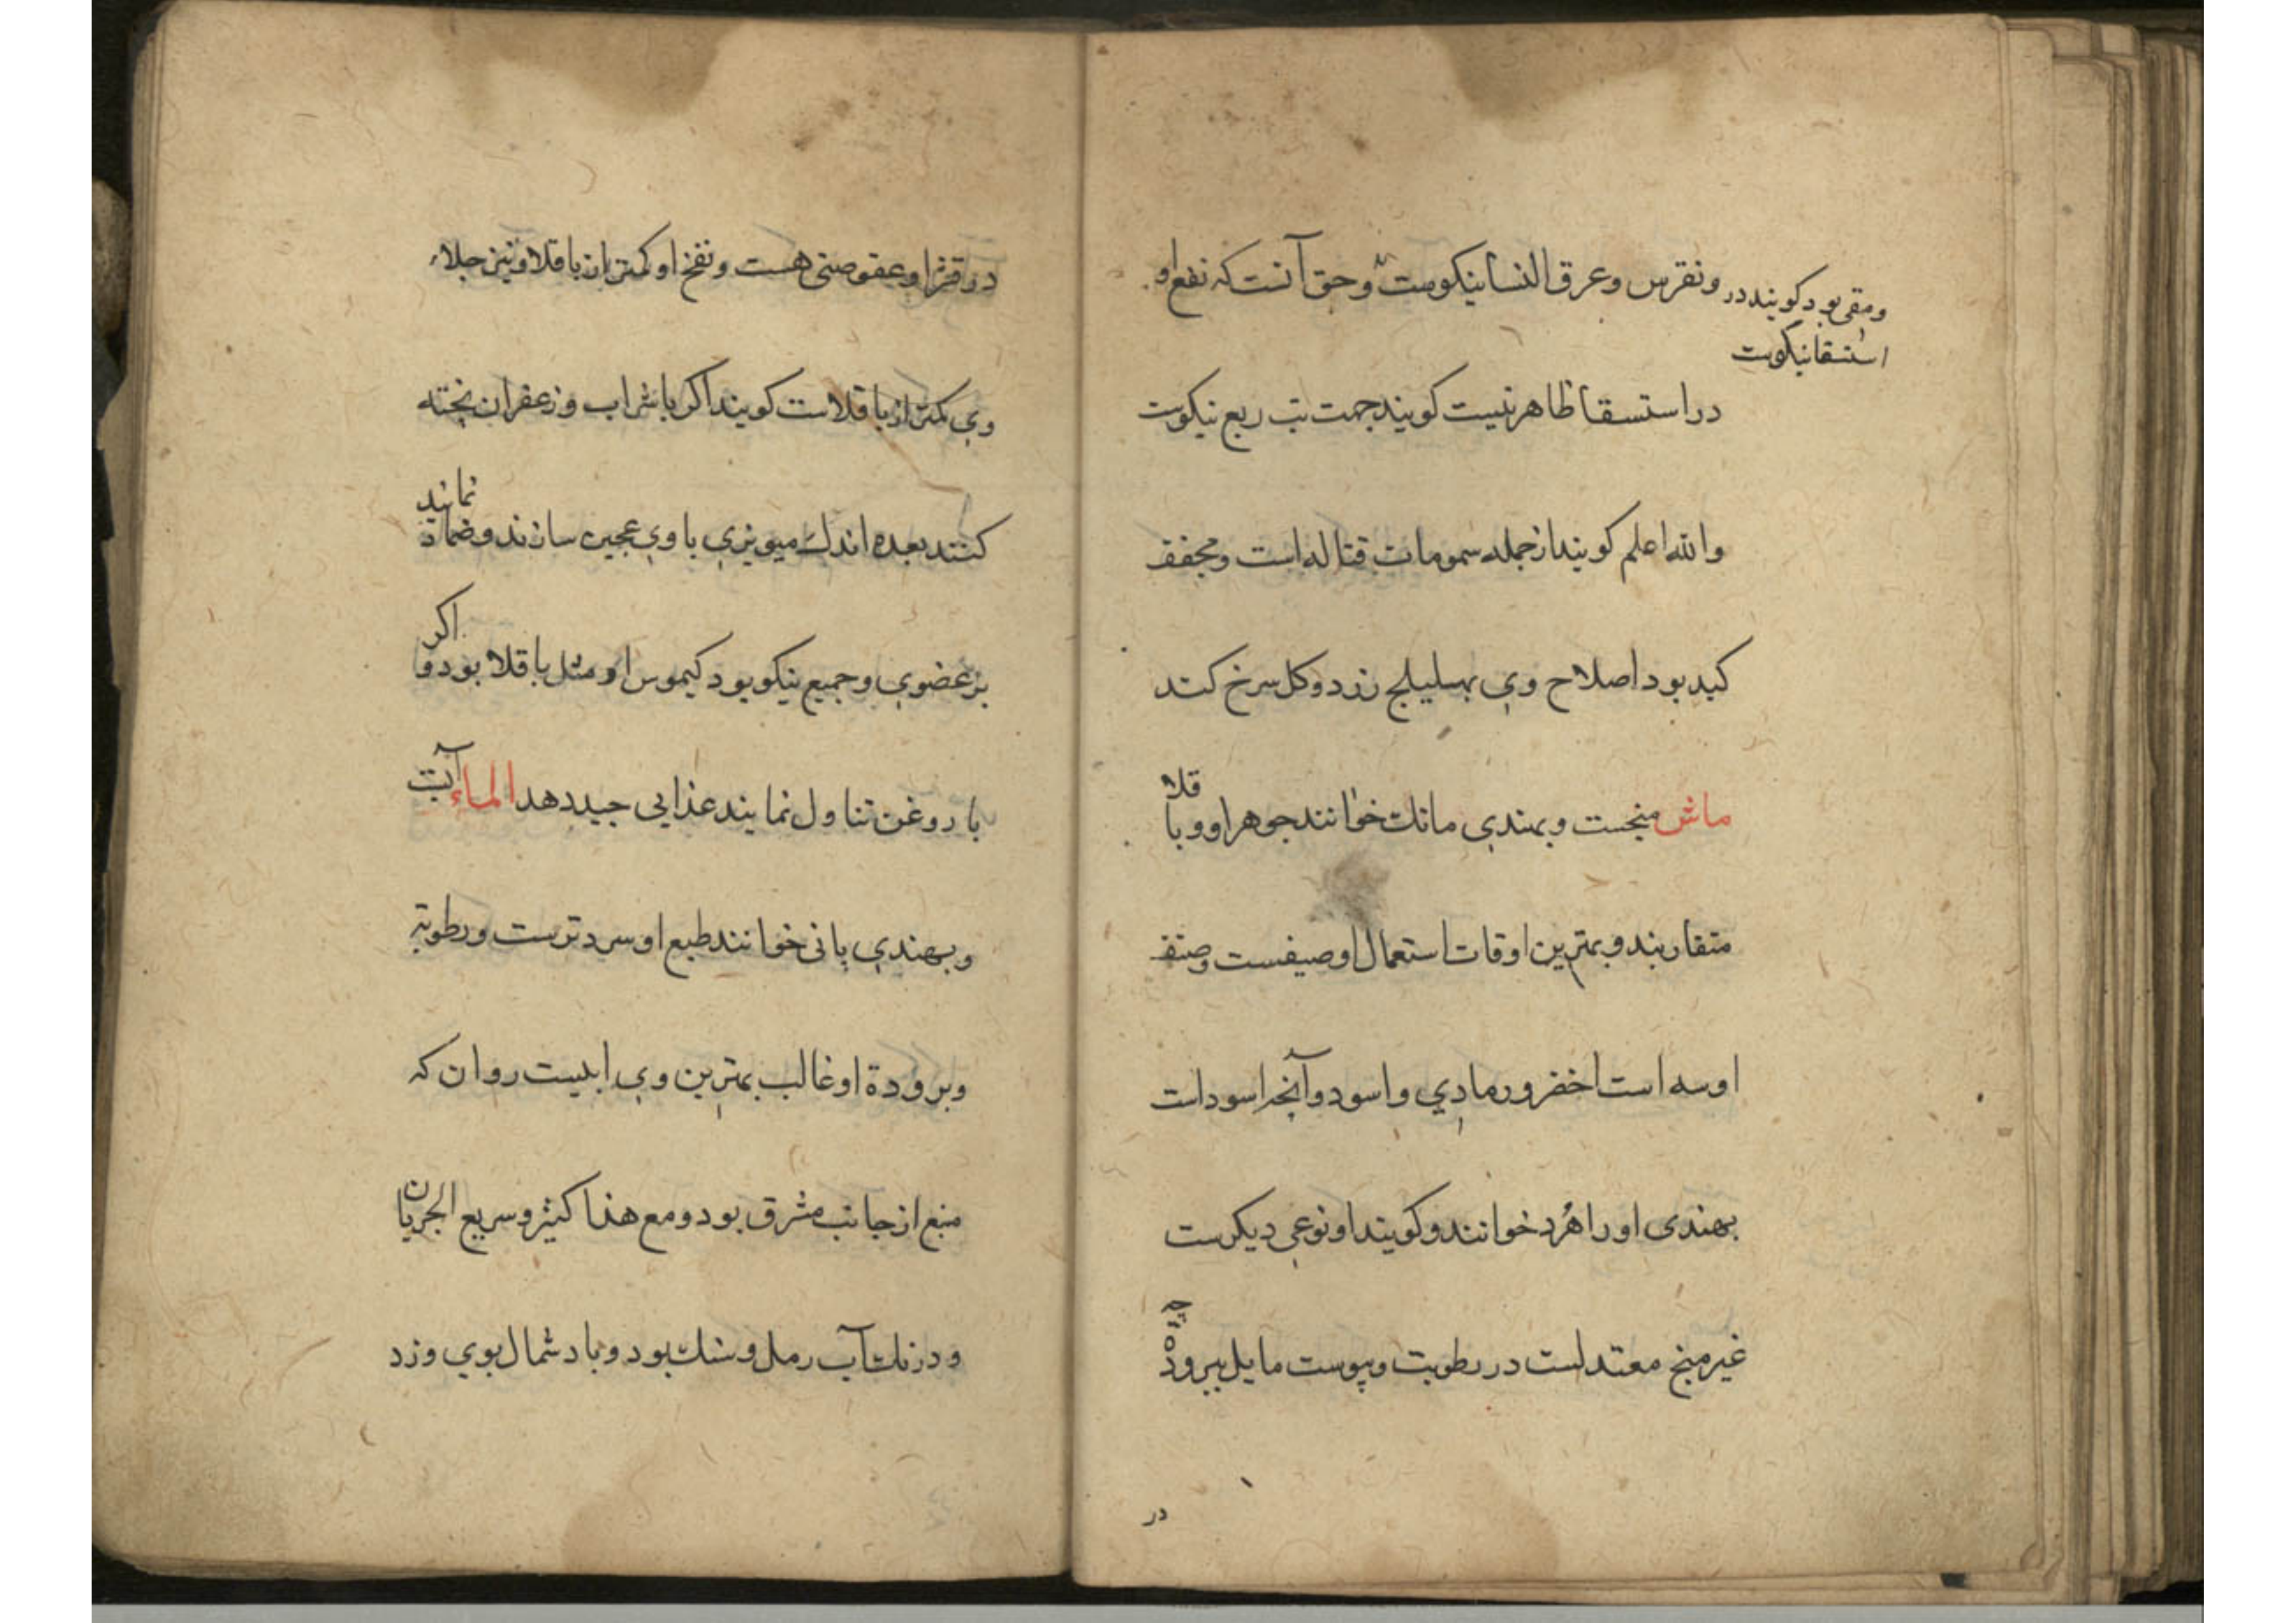 ونقرس وعرق النسا نیکوست وحق آنست که نفع او
ومقی بود کویند در
استسقا نیکوست
در استسقا ظاهر نیست کویند جهت تب ربع نیکوست
والله اعلم کویند از جمله سمومات قتاله است ومجفف
کبد بود اصلاح وی بهلیلج زرد وکل سرخ کند
ماش منجست وبهندی مانک خوانند جوهر او وباقلا
متقاربند وبهترین اوقات استعمال او صیفست وصنف
او سه است اخضر ورمادی واسود وآنچه اسود است
بهندی اورا هرد خوانند وکویند او نوعی دیکرست
غیر منج معتدلست در رطوبت ویبوست مایل ببرودة چه
در
در قشر او عفوصتی هست ونفخ او کمتر از باقلا ونیز جلاء
وی کمتر از باقلاست کویند اکر با شراب وزعفران پخته
کنند بعده اندک میویزی با وی عجین سازند وضماد نمایند
بر عضوی وجمیع نیکو بود کیموس او مثل باقلا بود واکر
با روغن تناول نمایند غذایی جید دهد الماء آبست
وبهندی پانی خوانند طبع او سرد ترست ورطوبة
وبرودة او غالب بهترین وی ابیست روان که
منبع از جانب مشرق بود ومع هذا کثیر وسریع الجریان
ودر تک آب رمل وسنک بود وباد شمال بوی وزد